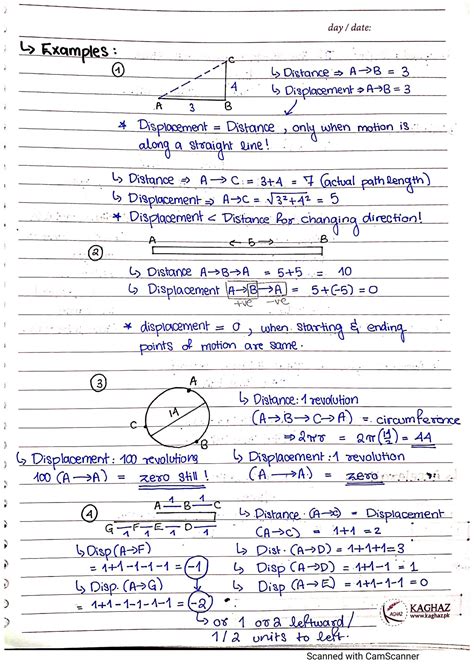 day / date:
↳ Examples :
①
C
4
A 3 B
↳ Distance ⇒ A→B = 3
↳ Displacement ⇒ A→B = 3
* Displacement = Distance , only when motion is
along a straight line!
↳ Distance ⇒ A → C = 3+4 = 7 (actual path length)
↳ Displacement ⇒ A→C = √3²+4² = 5
* Displacement < Distance for changing direction!
②
A ← 5 → B
↳ Distance A→B→A = 5+5 = 10
↳ Displacement A→B→A = 5+(-5) = 0
+ve -ve
* displacement = 0 , when starting & ending
points of motion are same.
③
A
14
C
B
↳ Distance: 1 revolution
(A→B→C→A) = circumference
⇒ 2πr = 2π(14/2) = 44
↳ Displacement: 100 revolutions
100 (A→A) = zero still !
↳ Displacement: 1 revolution
(A→A) = zero
④
1 1
A–B–C
G–F–E–D
1 1 1
↳ Distance = Displacement
(A→C) = 1+1 = 2
↳ Disp (A→F)
= 1+1-1-1-1 = -1
↳ Dist. (A→D) = 1+1+1 = 3
↳ Disp (A→D) = 1+1-1 = 1
↳ Disp. (A→G)
= 1+1-1-1-1-1 = -2
↳ Disp (A→E) = 1+1-1-1 = 0
↳ or 1 or 2 leftward /
1/2 units to left.
KAGHAZ
www.kaghaz.pk
Scanned with CamScanner